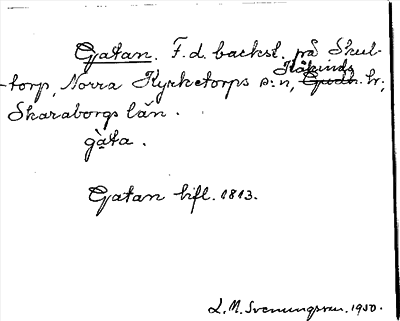 Gatan. F. d. backst. på Skul-
torp, Norra Kyrketorps s:n, Kåkinds hr;
Skaraborgs län.
gàta.
Gatan hfl. 1813.
L. M. Svenungsson. 1930.